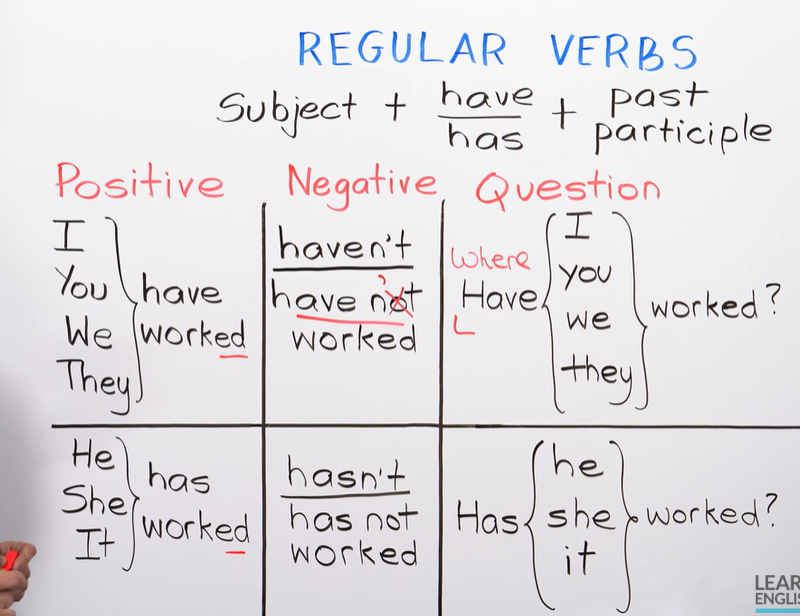 REGULAR VERBS
Subject + have / has + past participle
Positive Negative Question
I
You
We
They
have
worked
haven't
have not
worked
Where
Have
I
you
we
they
worked?
He
She
It
has
worked
hasn't
has not
worked
Has
he
she
it
worked?
LEAR
ENGLIS